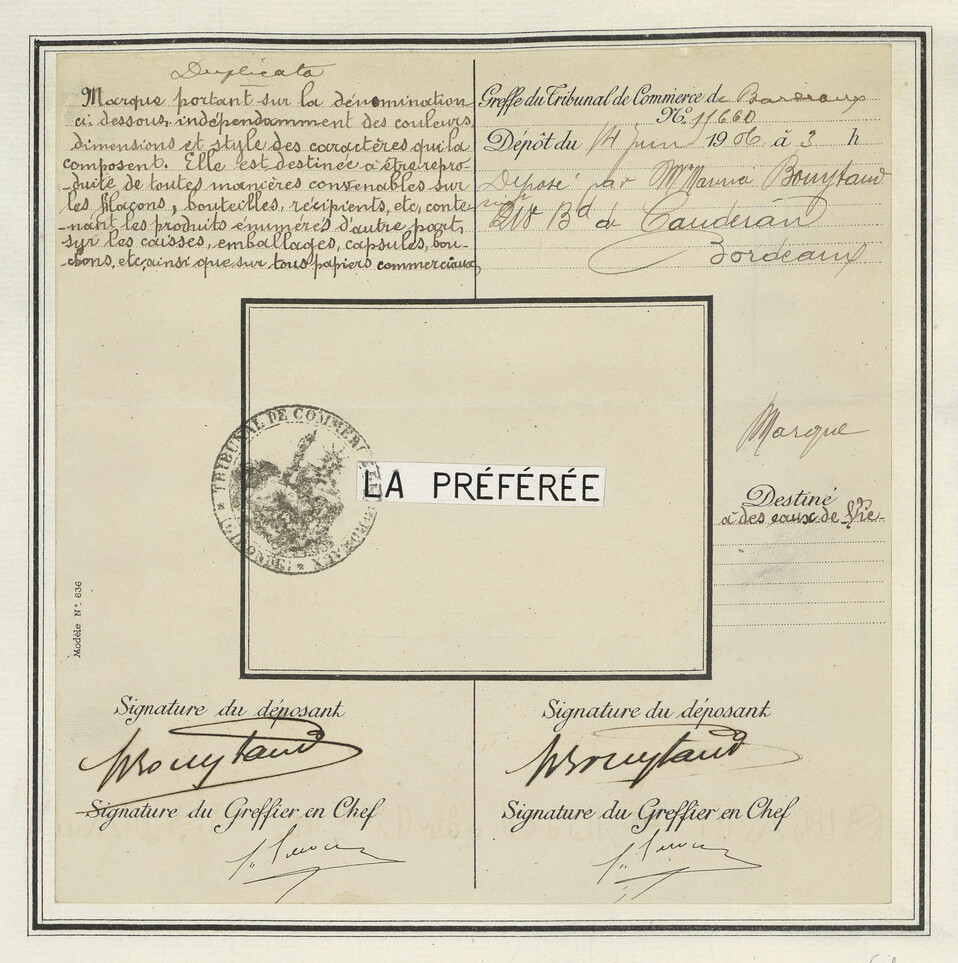 Duplicata
Marque portant sur la dénomination
ci-dessous, indépendamment des couleurs,
dimensions et style des caractères qui la
composent. Elle est destinée à être repro-
-duite de toutes manières convenables sur
les flacons, bouteilles, récipients, etc, conte-
-nant les produits énumérés d'autre part,
sur les caisses, emballages, capsules, bou-
-chons, etc, ainsi que sur tous papiers commerciaux
Greffe du Tribunal de Commerce de Bordeaux
N°. 11660
Dépôt du 14 juin 1906 à 3 h
Déposé par Bouytaud
210 Bd de Caudéran
Bordeaux
TRIBUNAL DE COMMERCE DE BORDEAUX * (GIRONDE) *
LA PRÉFÉRÉE
Marque
Destiné
à des eaux de Vie
Modèle N°. 636
Signature du déposant
Bouytaud
Signature du Greffier en Chef
Signature du déposant
Bouytaud
Signature du Greffier en Chef